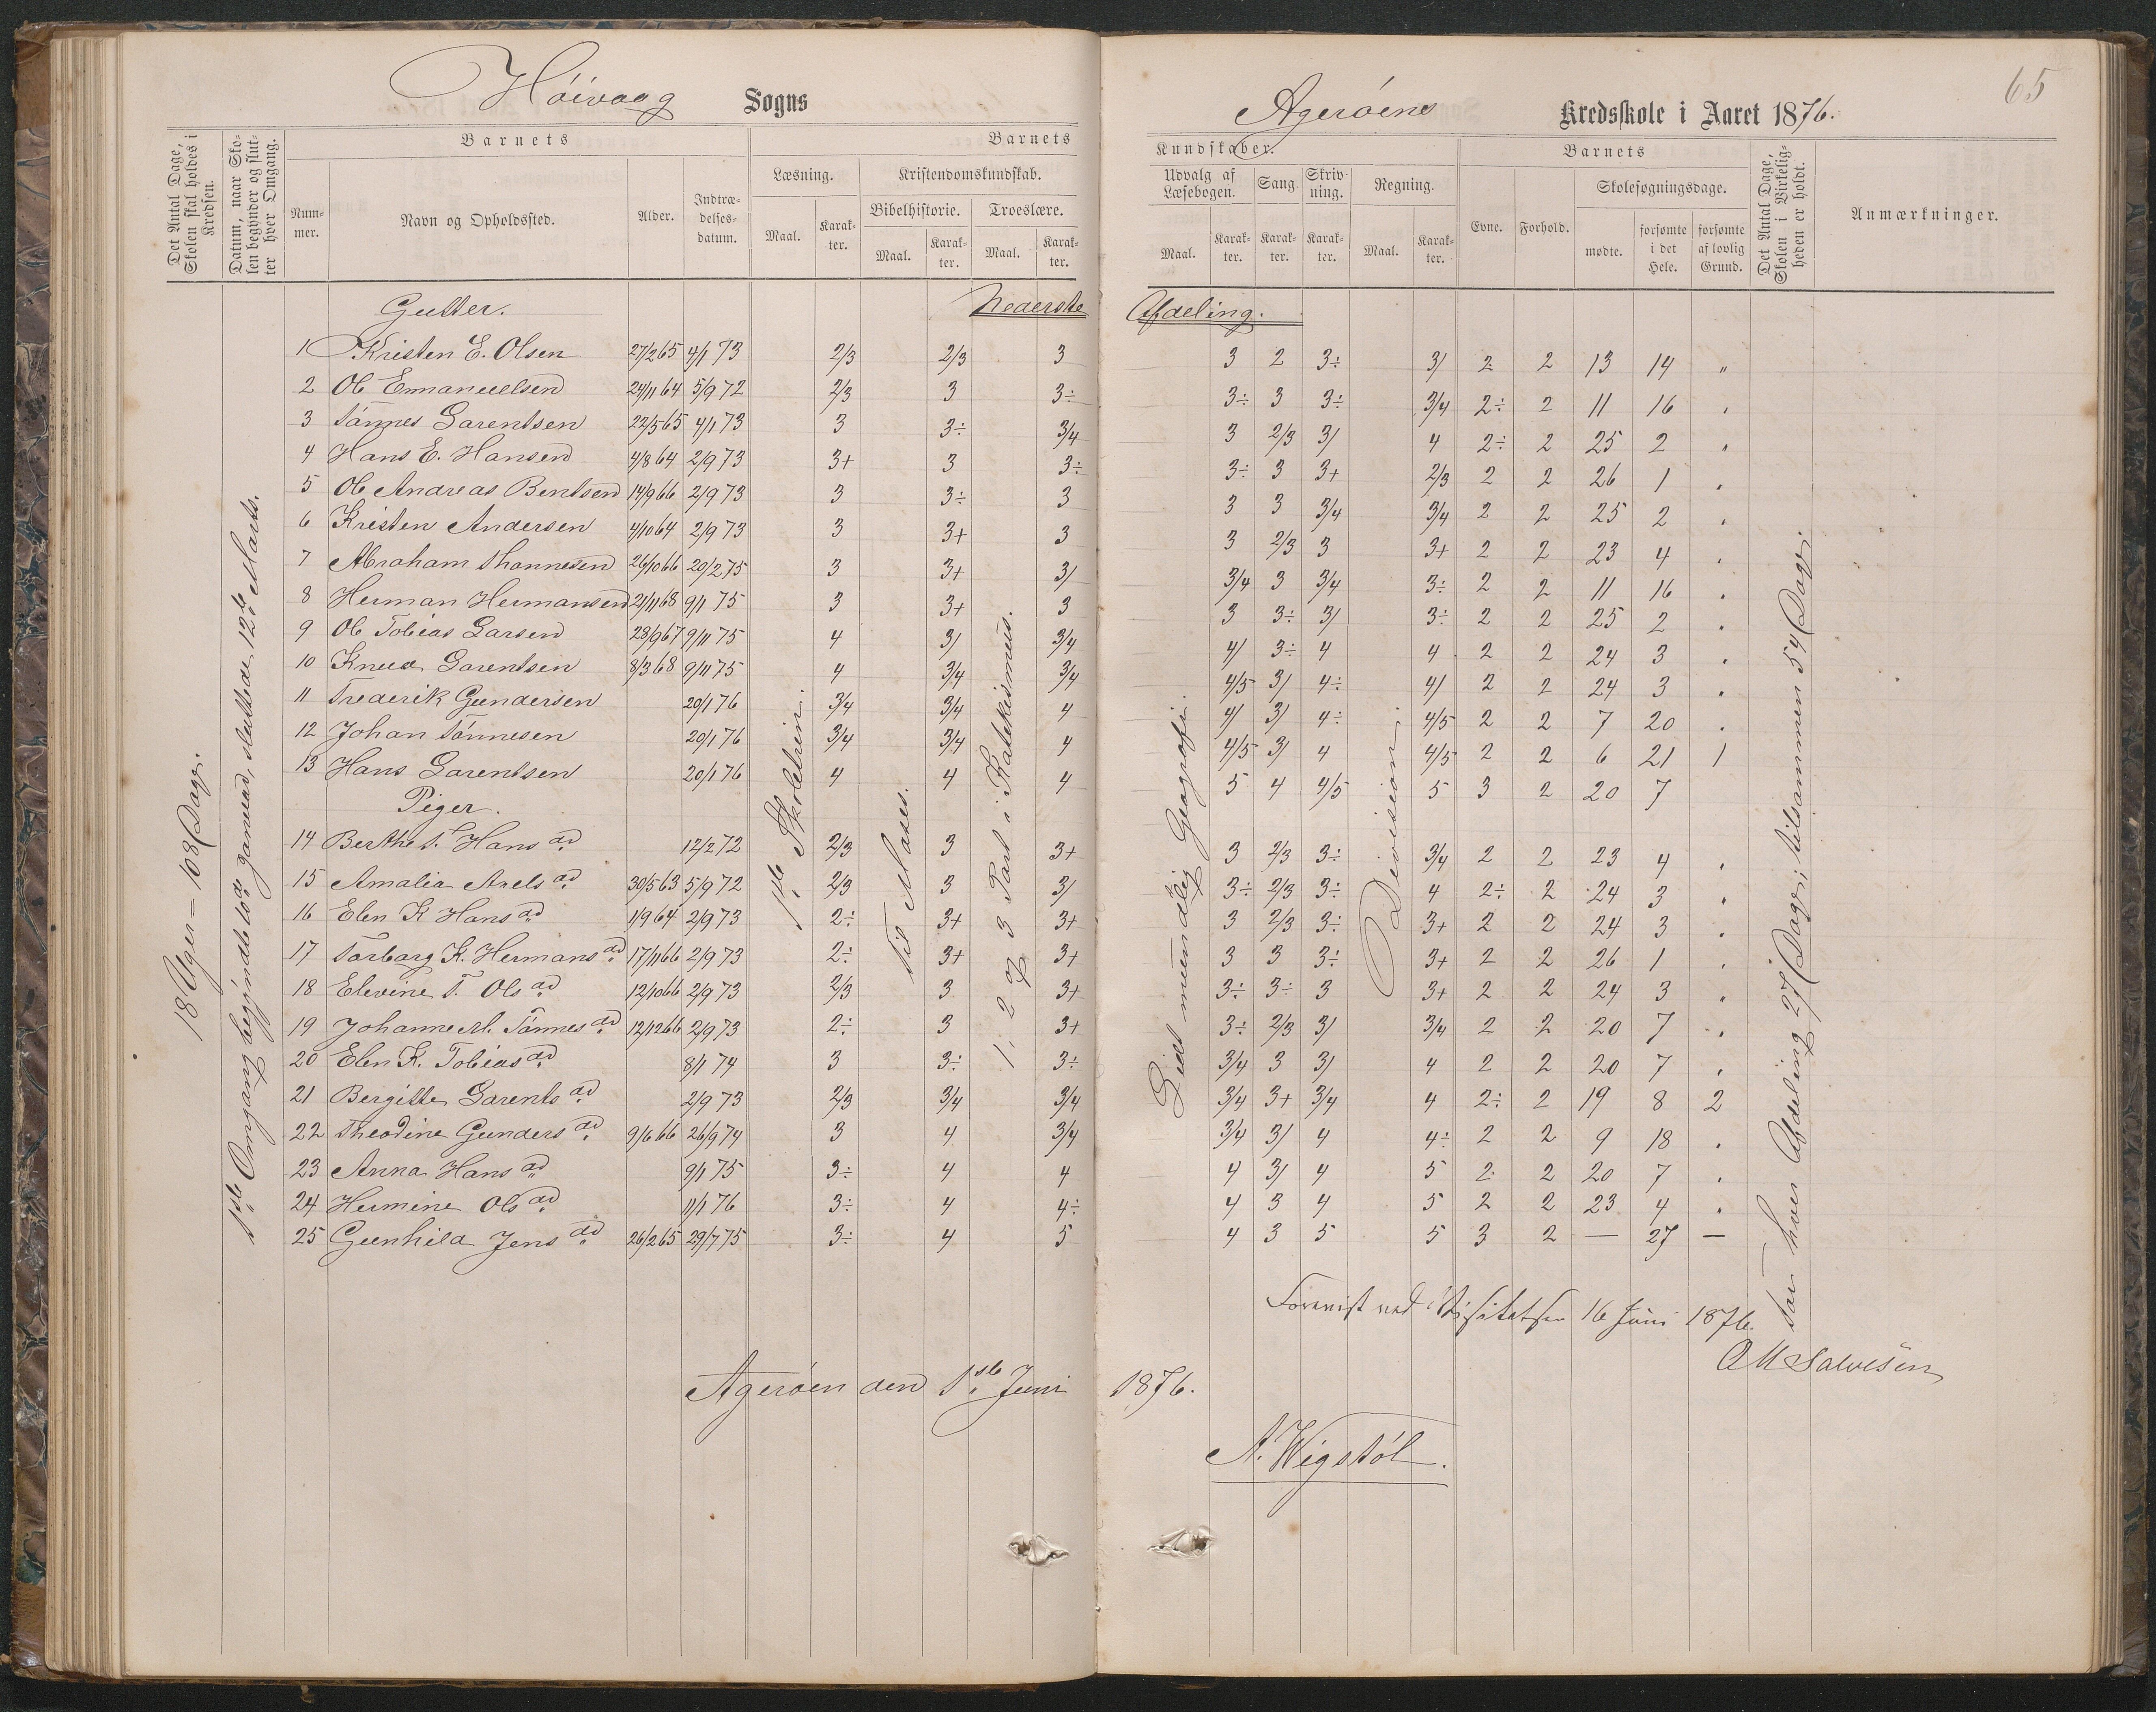 Höivaag Sogns
Agerøens Kredsskole i Aaret 1876.
65
Det Antal Dage, Skolen skal holdes i Kredsen.
Datum, naar Skolen begynder og slutter hver Omgang.
Barnets
Nummer.
Navn og Opholdssted.
Alder.
Indtrædelsesdatum.
Barnets
Læsning.
Maal.
Karakter.
Kristendomskundskab.
Bibelhistorie.
Maal.
Karakter.
Troeslære.
Maal.
Karakter.
Kundskaber.
Udvalg af Læsebogen.
Maal.
Karakter.
Sang.
Karakter.
Skrivning.
Karakter.
Regning.
Maal.
Karakter.
Barnets
Evne.
Forhold.
Skolesøgningsdage.
mødte.
forsømte i det Hele.
forsømte af lovlig Grund.
Det Antal Dage, Skolen i Virkeligheden er holdt.
Anmærkninger.
Gutter.
Nederste Afdeling.
1 Kristen E. Olsen 27/2 65 4/1 73 2/3 2/3 3 3 2 3÷ 3/ 2 2 13 14 "
2 Ole Emanuelsen 24/11 64 5/9 72 2/3 3 3÷ 3÷ 3 3÷ 3/4 2÷ 2 11 16 .
3 Tönnes Larentsen 22/5 65 4/1 73 3 3÷ 3/4 3 2/3 3/ 4 2÷ 2 25 2 .
4 Hans E. Hansen 4/8 64 2/9 73 3+ 3 3÷ 3÷ 3 3+ 2/3 2 2 26 1 .
5 Ole Andreas Bentsen 14/9 66 2/9 73 3 3÷ 3 3 3 3/4 3/4 2 2 25 2 .
6 Kristen Andersen 4/10 64 2/9 73 3 3+ 3 3 2/3 3 3+ 2 2 23 4 .
7 Abraham Thannesen 26/10 66 20/2 75 3 3+ 3/ 3/4 3 3/4 3÷ 2 2 11 16 .
8 Herman Hermansen 21/11 68 9/1 75 3 3+ 3 3 3÷ 3/ 3÷ 2 2 25 2 .
9 Ole Tobias Larsen 23/9 67 9/11 75 4 3/ 3/4 4/ 3÷ 4 4 2 2 24 3 .
10 Knud Larentsen 8/3 68 9/11 75 4 3/4 3/4 4/5 3/ 4÷ 4/ 2 2 24 3 .
11 Frederik Gundersen 20/1 76 3/4 3/4 4 4/ 3/ 4÷ 4/5 2 2 7 20 .
12 Johan Tönnesen 20/1 76 3/4 3/4 4 4/5 3/ 4 4/5 2 2 6 21 1
13 Hans Larentsen 20/1 76 4 4 4 5 4 4/5 5 3 2 20 7
Piger.
14 Berthe T. Hans ad 12/2 72 2/3 3 3+ 3 2/3 3÷ 3/4 2 2 23 4 .
15 Amalia Axels ad 30/5 63 5/9 72 2/3 3 3/ 3÷ 2/3 3÷ 4 2÷ 2 24 3 .
16 Elen K Hans ad 1/9 64 2/9 73 2÷ 3+ 3+ 3 2/3 3÷ 3+ 2 2 24 3 .
17 Torborg K. Hermans ad 17/11 66 2/9 73 2÷ 3+ 3+ 3 3 3÷ 3+ 2 2 26 1 .
18 Elevine T. Ols ad 12/10 66 2/9 73 2/3 3 3+ 3÷ 3÷ 3 3+ 2 2 24 3 .
19 Johanne M. Tönnes ad 12/12 66 2/9 73 2÷ 3 3+ 3÷ 2/3 3/ 3/4 2 2 20 7 .
20 Elen K. Tobias ad 8/1 74 3 3÷ 3÷ 3/4 3 3/ 4 2 2 20 7 .
21 Bergitte Larents ad 2/9 73 2/3 3/4 3/4 3/4 3+ 3/4 4 2÷ 2 19 8 2
22 Theodine Gunders ad 9/6 66 26/9 74 3 4 3/4 3/4 3/ 4 4÷ 2 2 9 18 .
23 Anna Hans ad 9/1 75 3÷ 4 4 4 3/ 4 5 2 2 20 7 .
24 Hermine Ols ad 11/1 76 3÷ 4 4÷ 4 3 4 5 2 2 23 4 .
25 Gunhild Jens ad 26/2 65 29/7 75 3÷ 4 5 4 3 5 5 3 2 — 27 —
18 Uger = 108 Dage.
1ste Omgang begyndte 10de Januar, sluttede 12te Marts.
1ste Skoletrin.
Til Moses.
1, 2 og 3 Part i Katekismus.
Lidt mundtlig Geografi.
Division.
For hver Afdeling 27 Dage; tilsammen 54 Dage.
Forevist ved Visitatsen 16 Juni 1876.
OM Salvesen
Agerøen den 1ste Juni 1876.
A. Wigstöl.